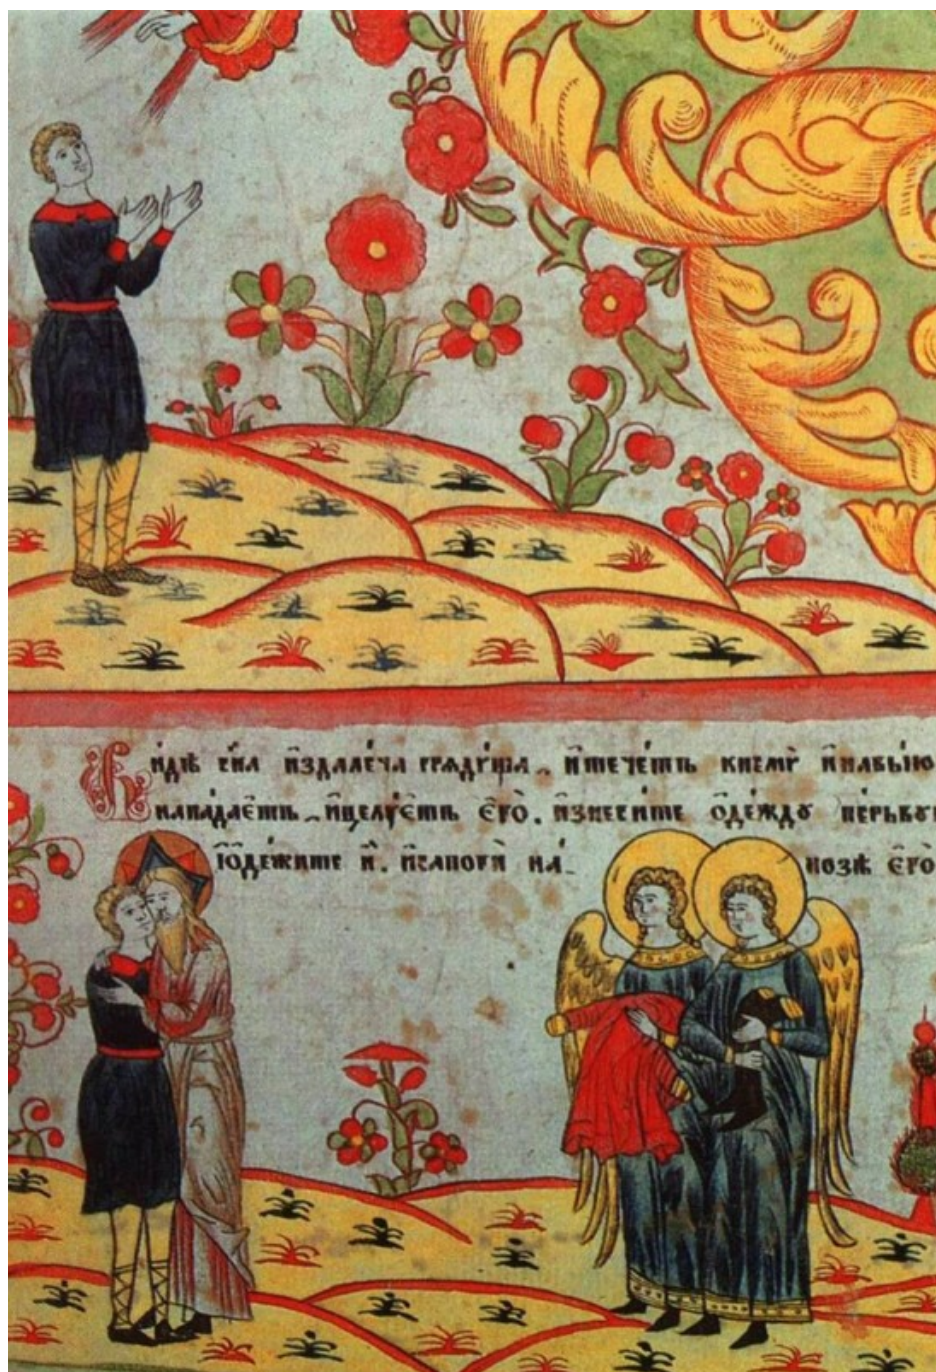 Видѣ сн҃а издалеча грядуща. и течетъ кнему и навыю
нападаетъ. и целуетъ его. изнесите одежду перьву
и одежите и. и сапоги на нозѣ его